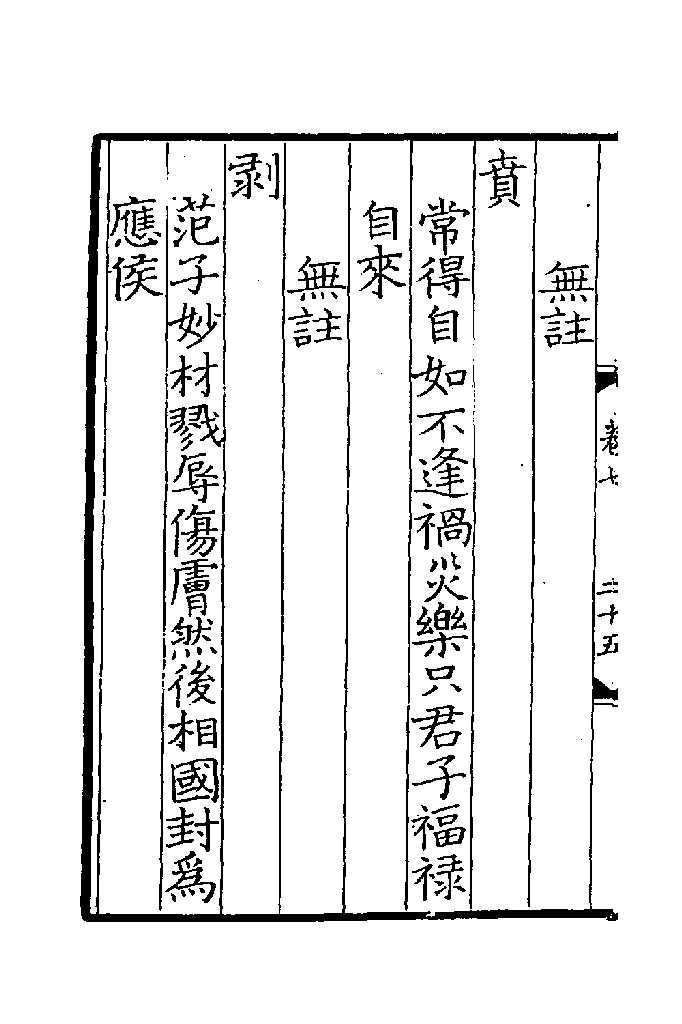 卷七
二十五
無註
賁
常得自如不逢禍災樂只君子福禄
自來
無註
剥
范子妙材戮辱傷膚然後相國封爲
應侯